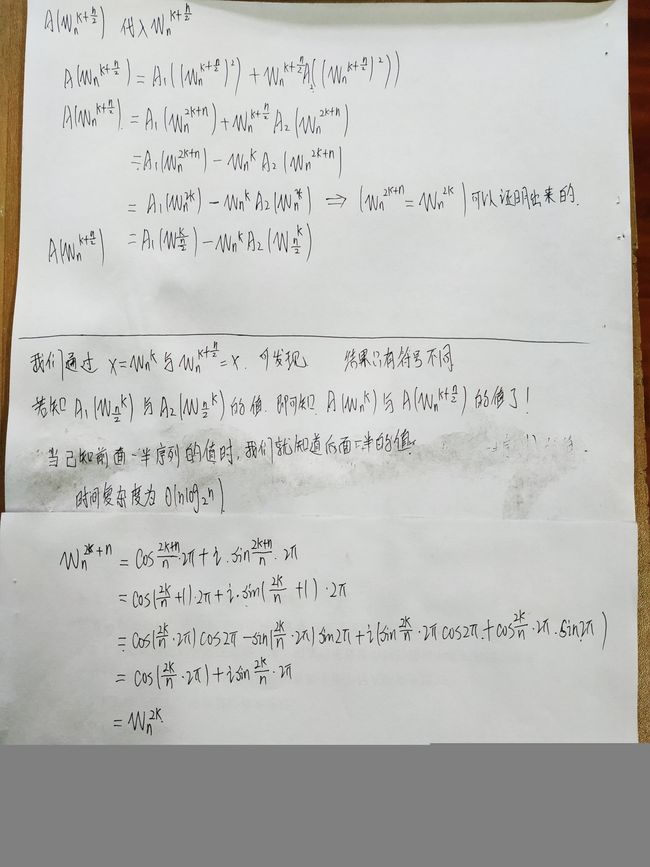 A(Wn^{k+n/2}) 代入 Wn^{k+n/2}
A(Wn^{k+n/2}) = A₁((Wn^{k+n/2})²) + Wn^{k+n/2} A₂((Wn^{k+n/2})²))
A(Wn^{k+n/2}) = A₁(Wn^{2k+n}) + Wn^{k+n/2} A₂(Wn^{2k+n})
= A₁(Wn^{2k+n}) - Wn^k A₂(Wn^{2k+n})
= A₁(Wn^{2k}) - Wn^k A₂(Wn^{2k}) ⇒ (Wn^{2k+n} = Wn^{2k}) 可以证明出来的.
A(Wn^{k+n/2}) = A₁(W_{n/2}^k) - Wn^k A₂(W_{n/2}^k)
我们通过 x=Wn^k 与 Wn^{k+n/2}=x. 可发现 结果只有符号不同
若知 A₁(W_{n/2}^k) 与 A₂(W_{n/2}^k) 的值. 即可知. A(Wn^k) 与 A(Wn^{k+n/2}) 的值了!
当已知前面一半序列的值时,我们就知道后面一半的值.
时间复杂度为 O(nlog₂n)
Wn^{2k+n} = cos (2k+n)/n·2π + i·sin (2k+n)/n·2π
= cos(2k/n +1)·2π + i·sin(2k/n +1)·2π
= cos(2k/n·2π)cos2π - sin(2k/n·2π)sin2π + i(sin 2k/n·2π cos2π + cos 2k/n·2π·sin2π)
= cos(2k/n·2π) + i sin 2k/n·2π
= Wn^{2k}